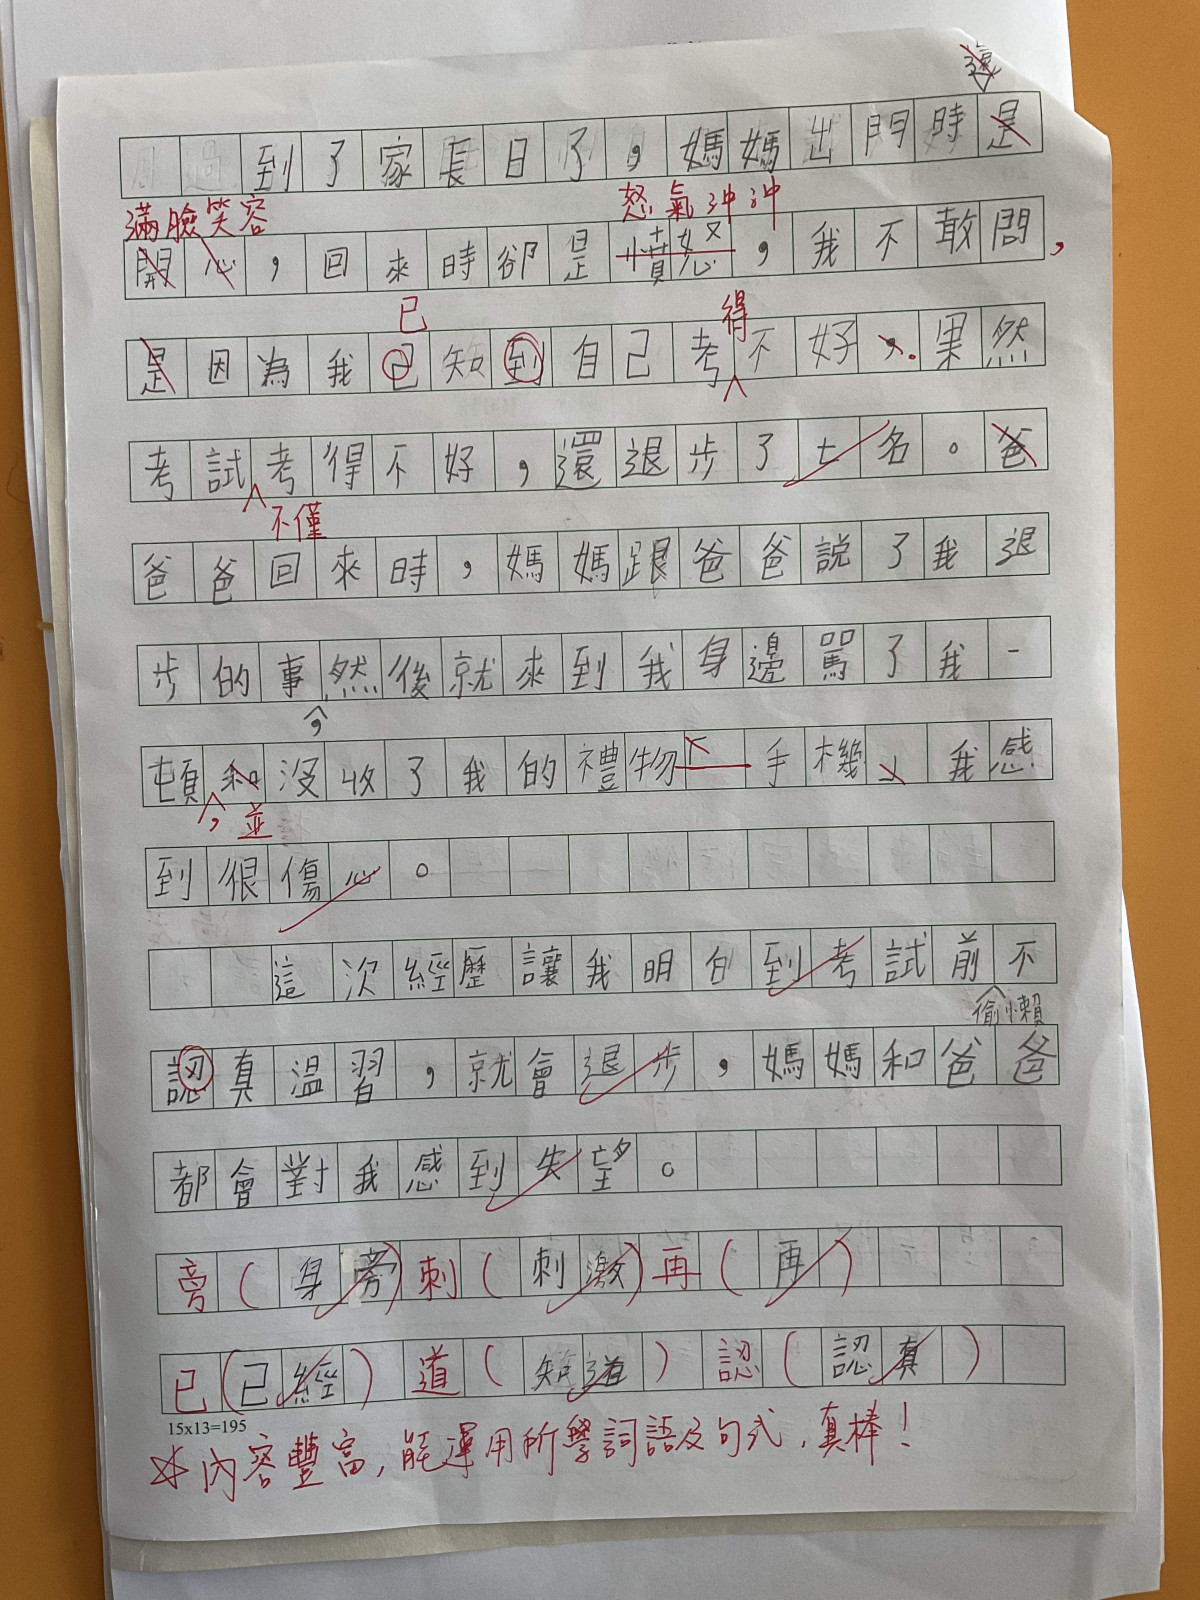 還
到了家長日了，媽媽出門時是
滿臉笑容 怒氣沖沖
開心，回來時卻是憤怒，我不敢問，
已 得
是因為我已知到自己考不好，。果然
考試考得不好，還退步了七名。爸
不僅
爸爸回來時，媽媽跟爸爸說了我退
步的事然後就來到我身邊罵了我一
，
頓和沒收了我的禮物﹁手機﹂我感
，並
到很傷心。
這次經歷讓我明白到考試前不
偷懶
認真溫習，就會退步，媽媽和爸爸
都會對我感到失望。
旁（身旁）刺（刺激）再（再）
已（已經）道（知道）認（認真）
15x13=195
☆內容豐富，能運用所學詞語及句式，真棒！